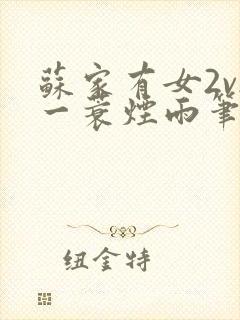 蘇家有女2v
一蓑煙雨筆
纽金特